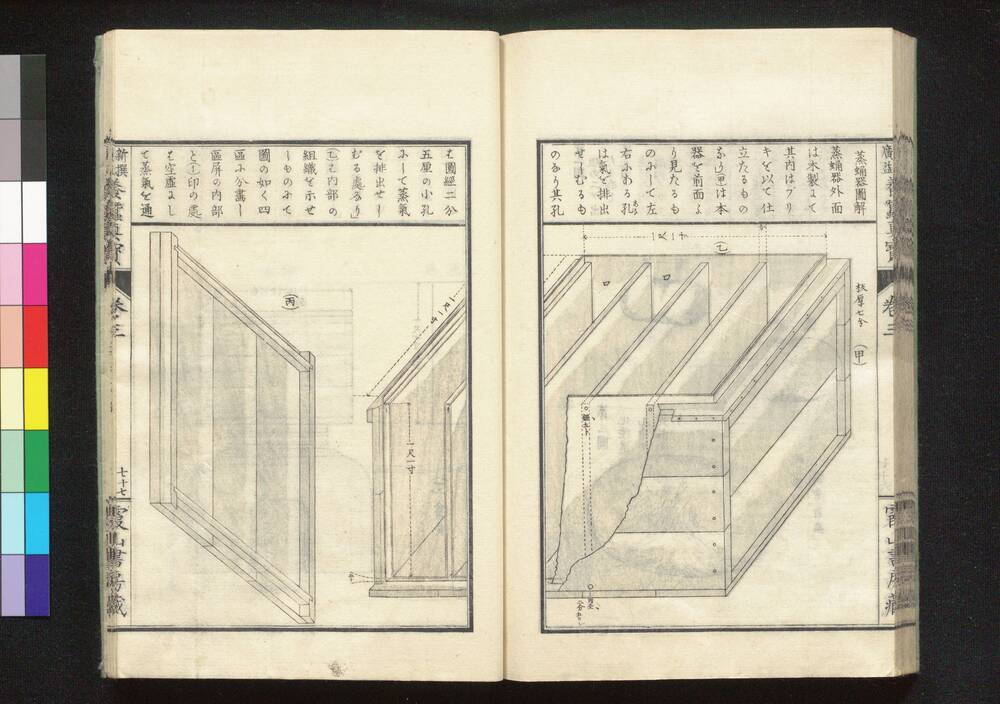 蒸蛹器圖解
蒸蛹器外面
は木製にて
其内はブリ
キを以て仕
立たるもの
なり(甲)は本
器を前面よ
り見たるも
のにして左
右にある孔
は氣を排出
せしむるも
のなり其孔
板厚七分
(甲)
(乙)
一尺一寸
ロ
ロ
卷三
は圓經二分
五厘の小孔
にして蒸氣
を排出せし
むる處なり
(乙)は内部の
組織を示せ
しものにて
圖の如く四
區に分畫し
區屏の内部
と(イ)印の處
は空虚にし
て蒸氣を通
一尺一寸
一尺一寸
(丙)
新撰養蠶眞寶
卷三
七十七
霞山書房藏